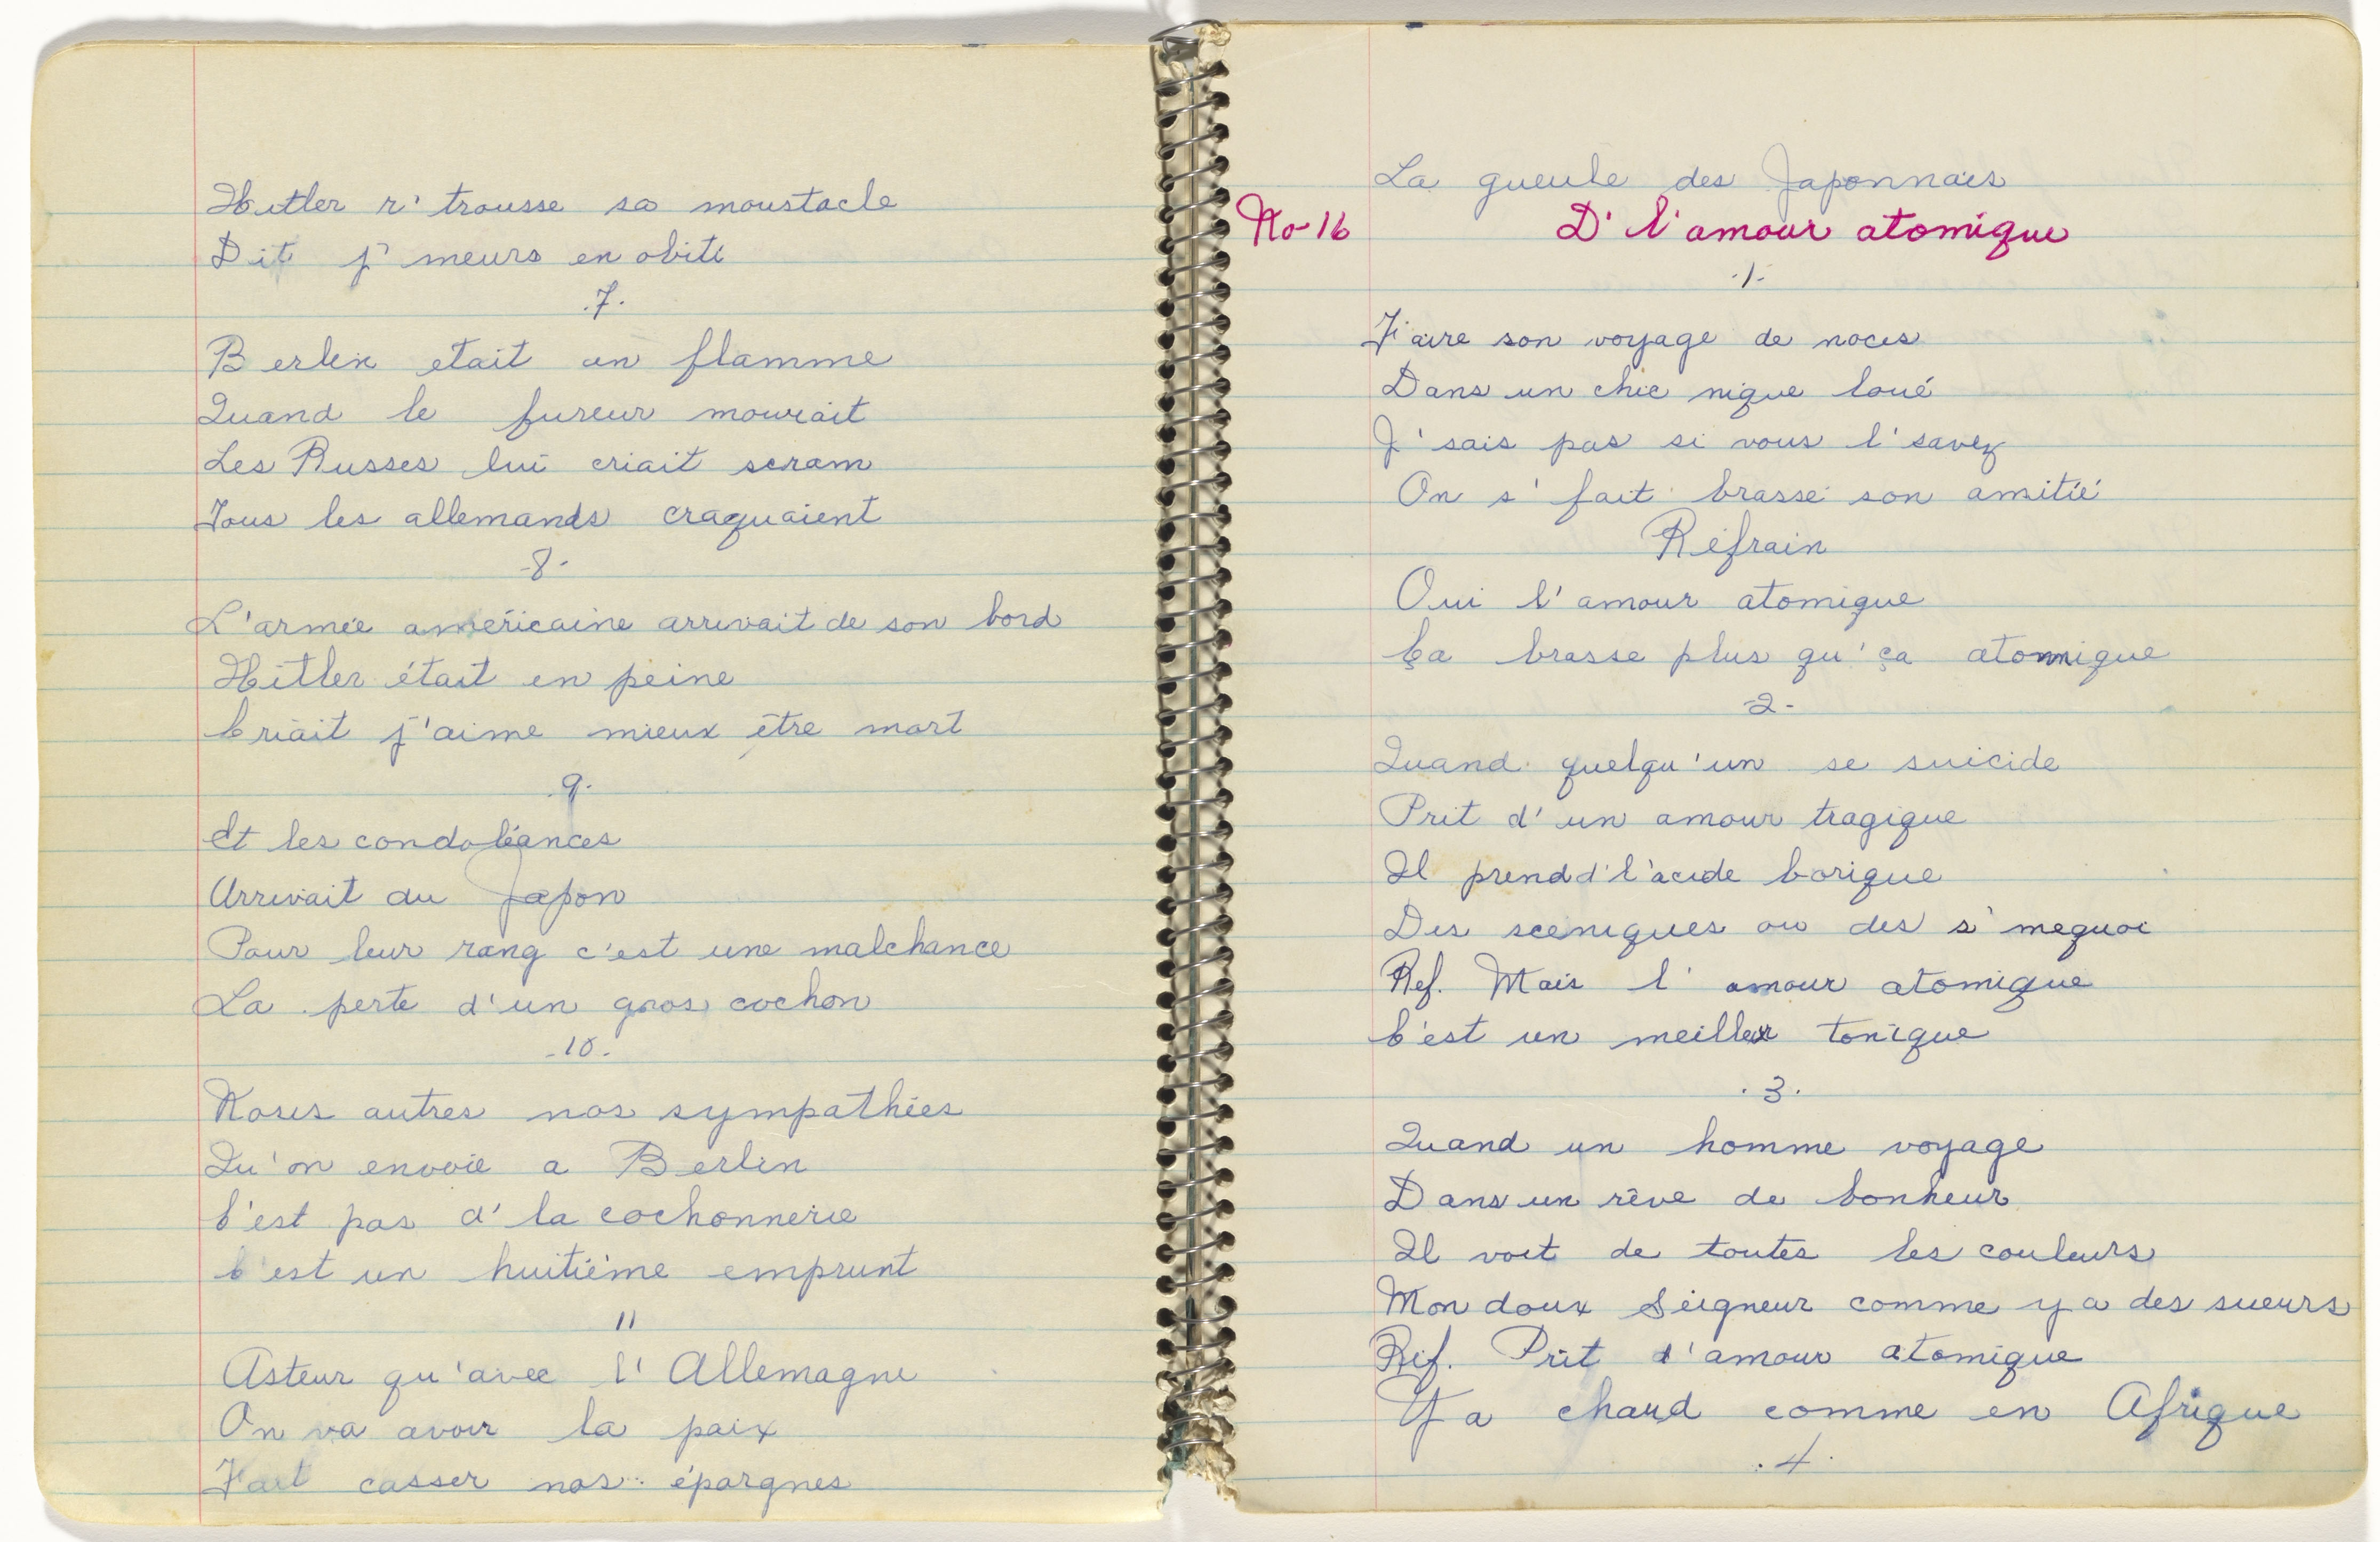 Hitler r'trousse sa moustacle
Dit j'meurs en obiti
.7.
Berlin etait en flamme
Quand le fureur mourait
Les Russes lui criait scram
Tous les allemands craquaient
-8-
L'armée américaine arrivait de son bord
Hitler était en peine
Criait j'aime mieux être mort
.9.
Et les condoléances
Arrivait du Japon
Pour leur rang c'est une malchance
La perte d'un gros cochon
-10-
Nous autres nos sympathies
Qu'on envoie a Berlin
C'est pas d'la cochonnerie
C'est un huitième emprunt
11
Asteur qu'avec l'Allemagne
On va avoir la paix
Faut casser nos épargnes
La gueule des Japonnais
No-16 D'l'amour atomique
.1.
Faire son voyage de noces
Dans un chic nique loué
J'sais pas si vous l'savez
On s'fait brassé son amitié
Refrain
Oui l'amour atomique
Ça brasse plus qu'ça atomique
-2-
Quand quelqu'un se suicide
Prit d'un amour tragique
Il prend d'l'acide borique
Des sceniques ou des s'mequoi
Ref. Mais l'amour atomique
C'est un meilleur tonique
.3.
Quand un homme voyage
Dans un rêve de bonheur
Il voit de toutes les couleurs
Mon doux Seigneur comme y a des sueurs
Ref. Prit d'amour atomique
Y a chaud comme en Afrique
.4.